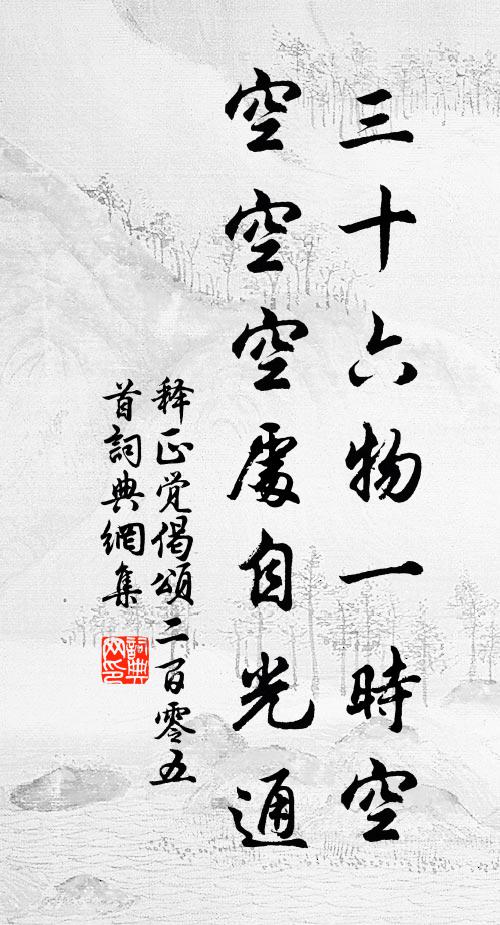 三十六物一時空
空空空處自光通
释正觉偈頌二百零五
首詞典網集
詞典
网印